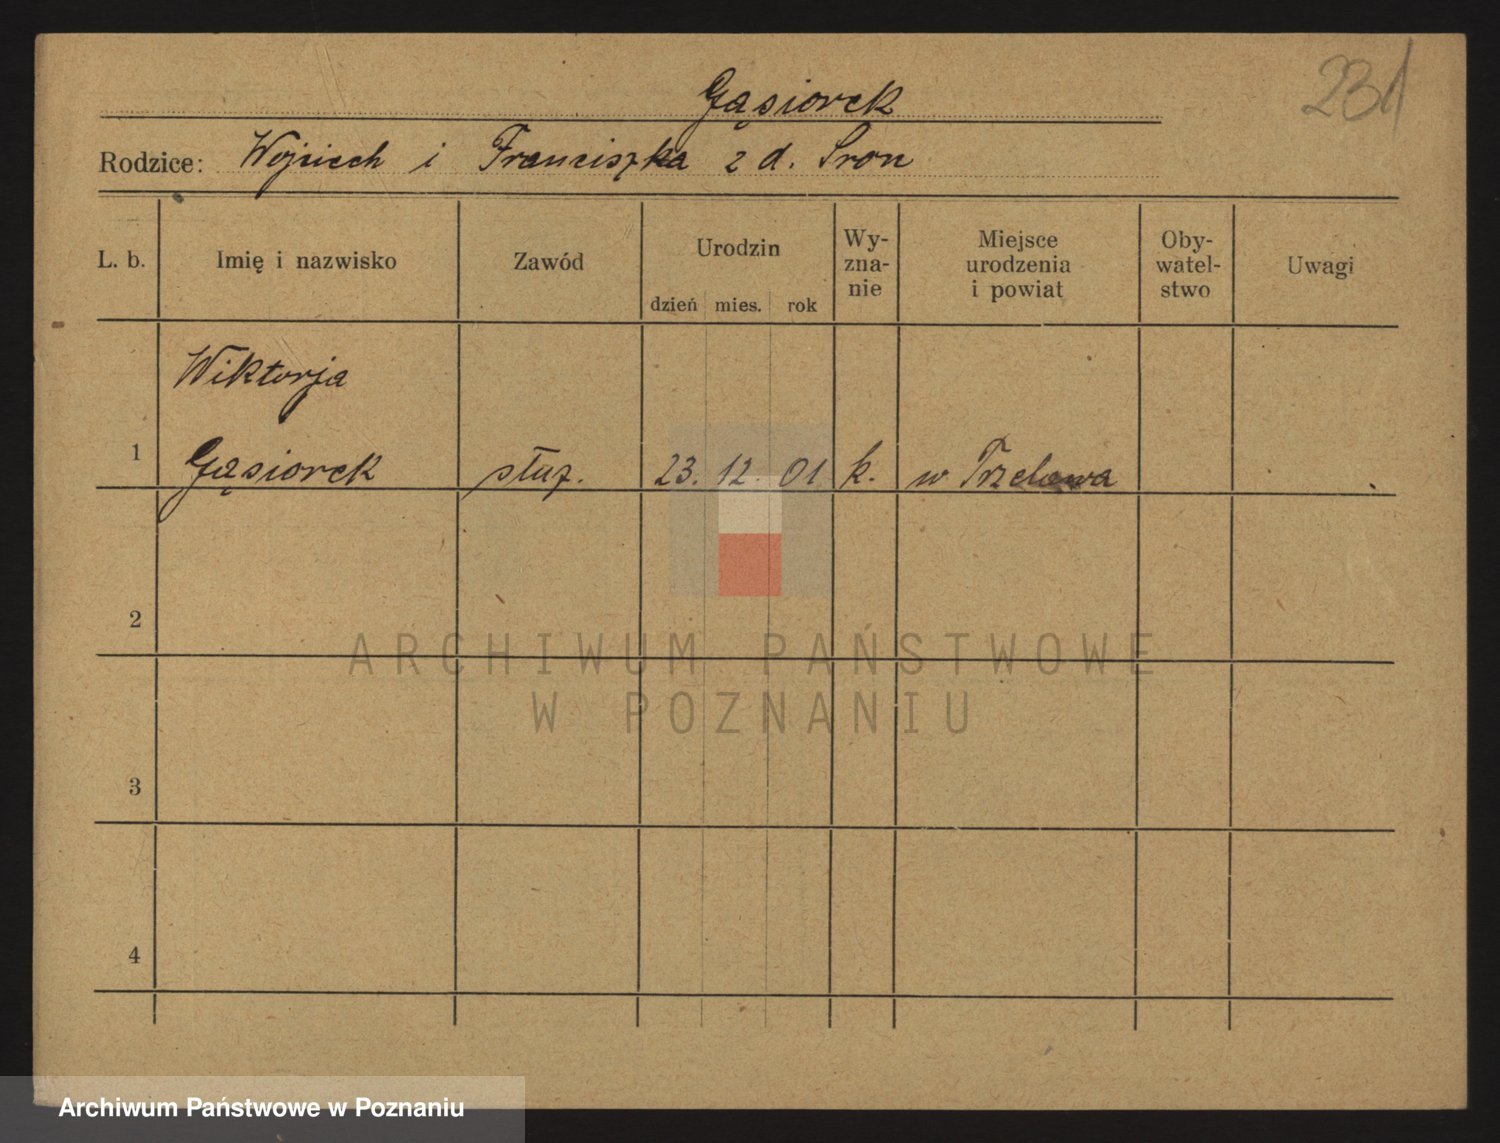 231
Gąsiorek
Rodzice: Wojciech i Franciszka z d. Sron
L. b. Imię i nazwisko Zawód Urodzin dzień mies. rok Wy-zna-nie Miejsce urodzenia i powiat Oby-watel-stwo Uwagi
Wiktorja
1 Gąsiorek służ. 23. 12. 01 k. w Trzelowa
2
ARCHIWUM PAŃSTWOWE
W POZNANIU
3
4
Archiwum Państwowe w Poznaniu